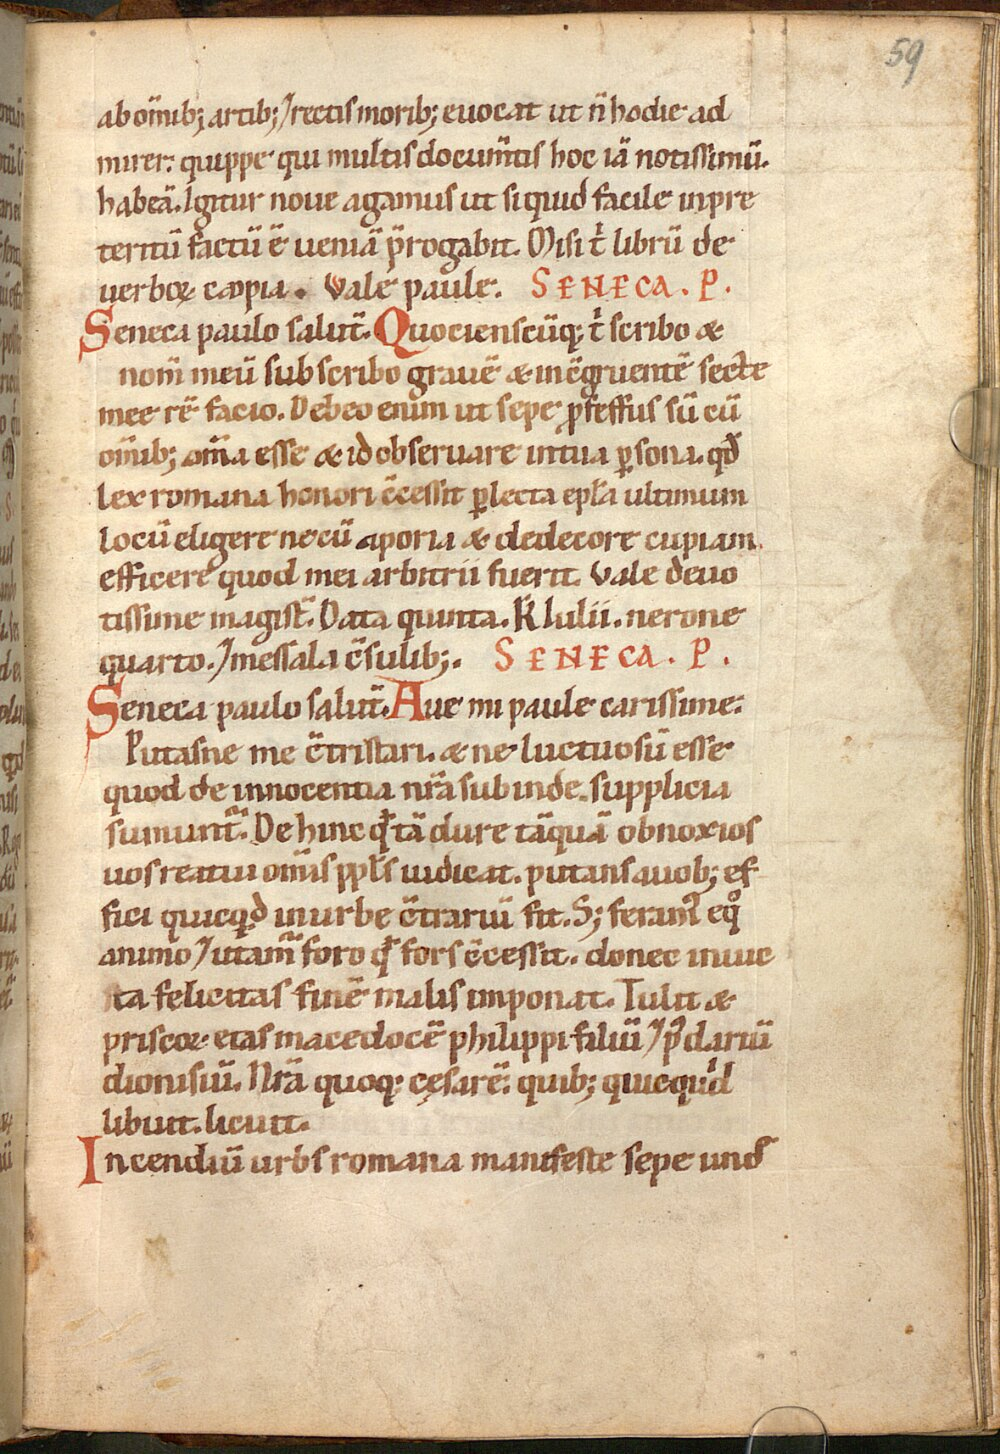 59
ab om̄ib; artib; ⁊ rectis morib; euocat ut n̄ hodie ad
mirer: quippe qui multis docum̄tis hoc iā notissimū.
habeā. Igitur noue agamus ut siquid facile inpre
teritū factū ē ueniā p̄rogabit. Misi t̄ librū de
uerboꝝ copia. Vale paule. SENECA. P.
Seneca paulo salut̄. Quocienscūq; t̄ scribo &
nom̄ meū subscribo grauē & incēgruentē secte
mee rē facio. Debeo enim ut sepe ꝓfessus sū cū
om̄ib; om̄a esse & id obseruare intua ꝑsona. qd̄
lex romana honori c̄cessit ꝑlecta epl̄a ultimum
locū eligere necū aporia & dedecore cupiam
efficere quod mei arbitrii fuerit. Vale deuo
tissime magist̄. Data quinta. K̄ Iulii. nerone
quarto. ⁊ messala c̄sulib;. SENECA. P.
Seneca paulo salut̄. Aue mi paule carissime:
Putasne me c̄tristari. & ne luctuosū esse
quod de innocentia nr̄a subinde. supplicia
sumunt᷑. Dehinc qđ tā dure tāquā obnoxios
uos reatui om̄is ppl̄s iudicat. putans auob; ef
fici quicqd̄ inurbe c̄trariū fit. S; feram᷒ eqͦ
animo ⁊ utam᷑ foro qđ fors c̄cessit. donec inuic
ta felicitas finē malis imponat. Tulit &
priscoꝝ etas macedocē philippi filiū ⁊ p̄ dariū
dionisiū. Nr̄a quoq; cęsarē: quib; quicquid
libuit. licuit.
Incendiū urbs romana manifeste sepe und̄